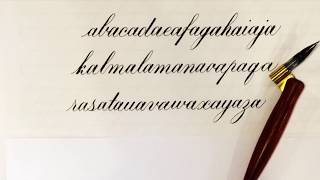 abacadaeafagahaiaja
kalmalamanaoapaqa
rasatauavawaxayaza